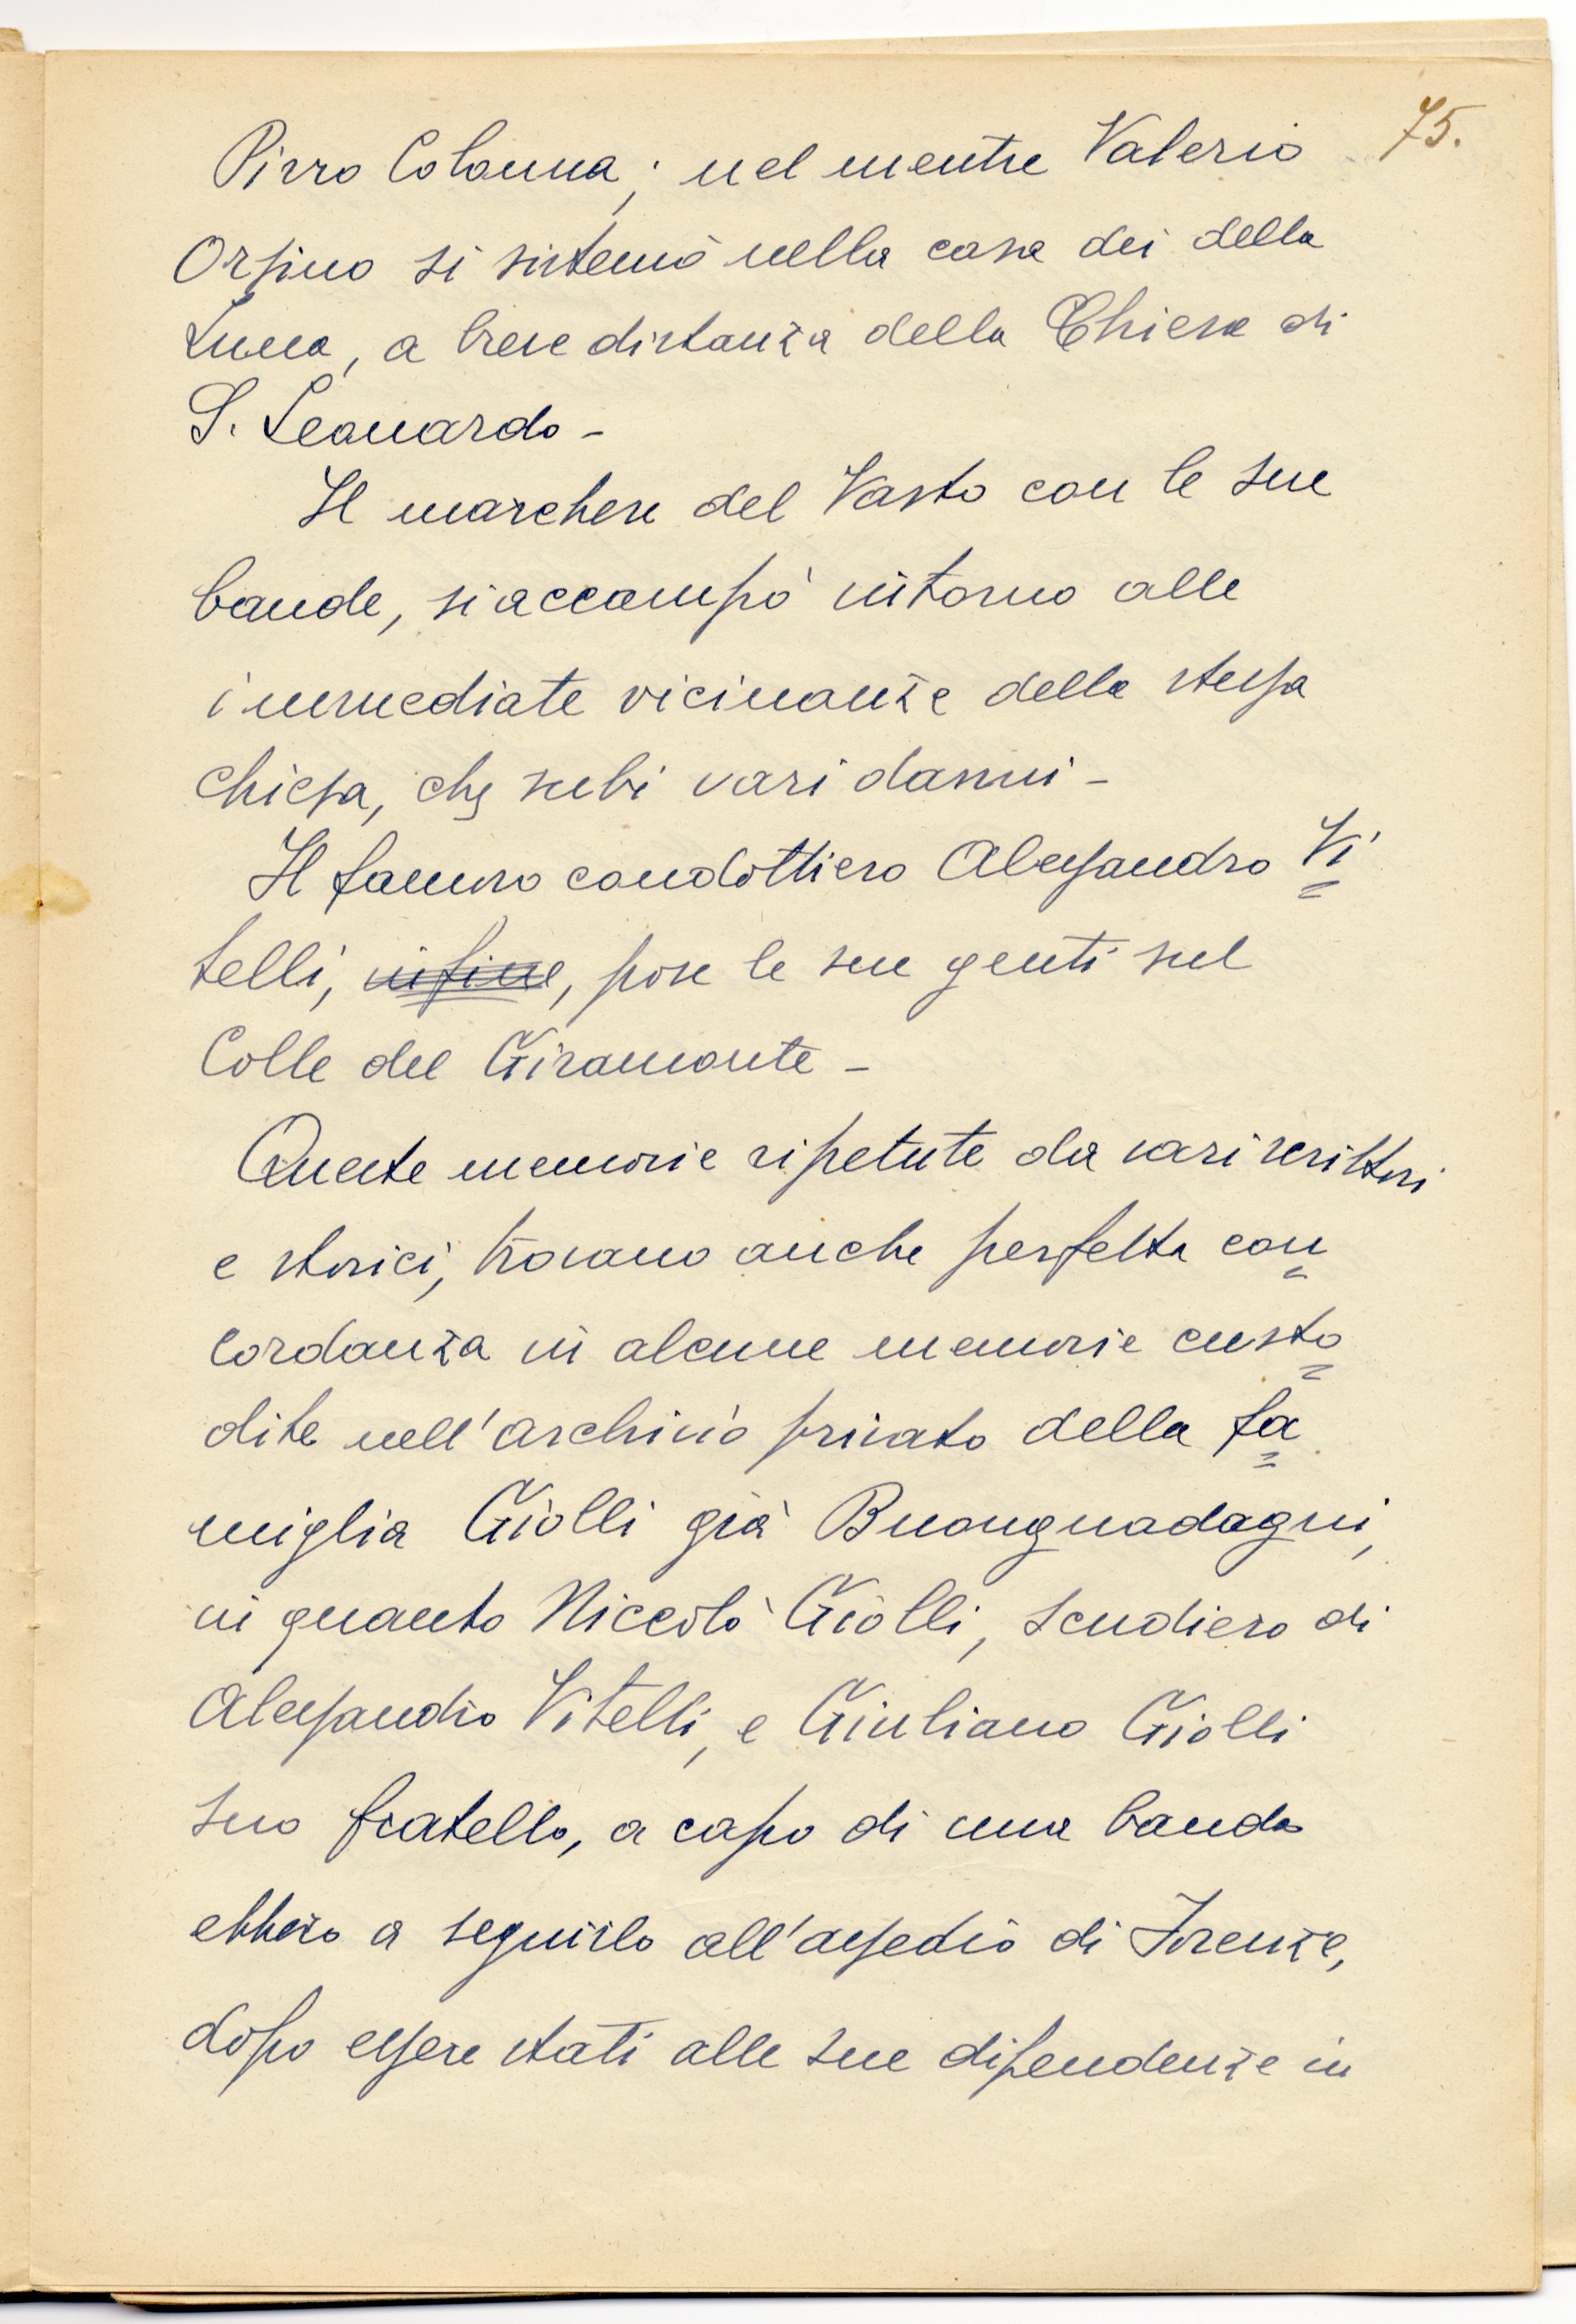 75.
Pirro Colonna; nel mentre Valerio
Orsino si sistemò nella casa dei della
Luna, a breve distanza della Chiesa di
S. Leonardo -
Il marchese del Vasto con le sue
bande, si accampò intorno alle
immediate vicinanze della stessa
chiesa, che subi vari danni -
Il famoso condottiero Alessandro Vi=
telli, infine, pose le sue genti sul
Colle del Giramonte -
Queste memorie ripetute da vari scrittori
e storici, trovano anche perfetta con=
cordanza in alcune memorie custo=
dite nell'archivio privato della fa=
miglia Giolli già Buonguadagni,
in quanto Niccolò Giolli, scudiero di
Alessandro Vitelli, e Giuliano Giolli
suo fratello, a capo di una banda
ebbero a seguirlo all'assedio di Firenze,
dopo essere stati alle sue dipendenze in